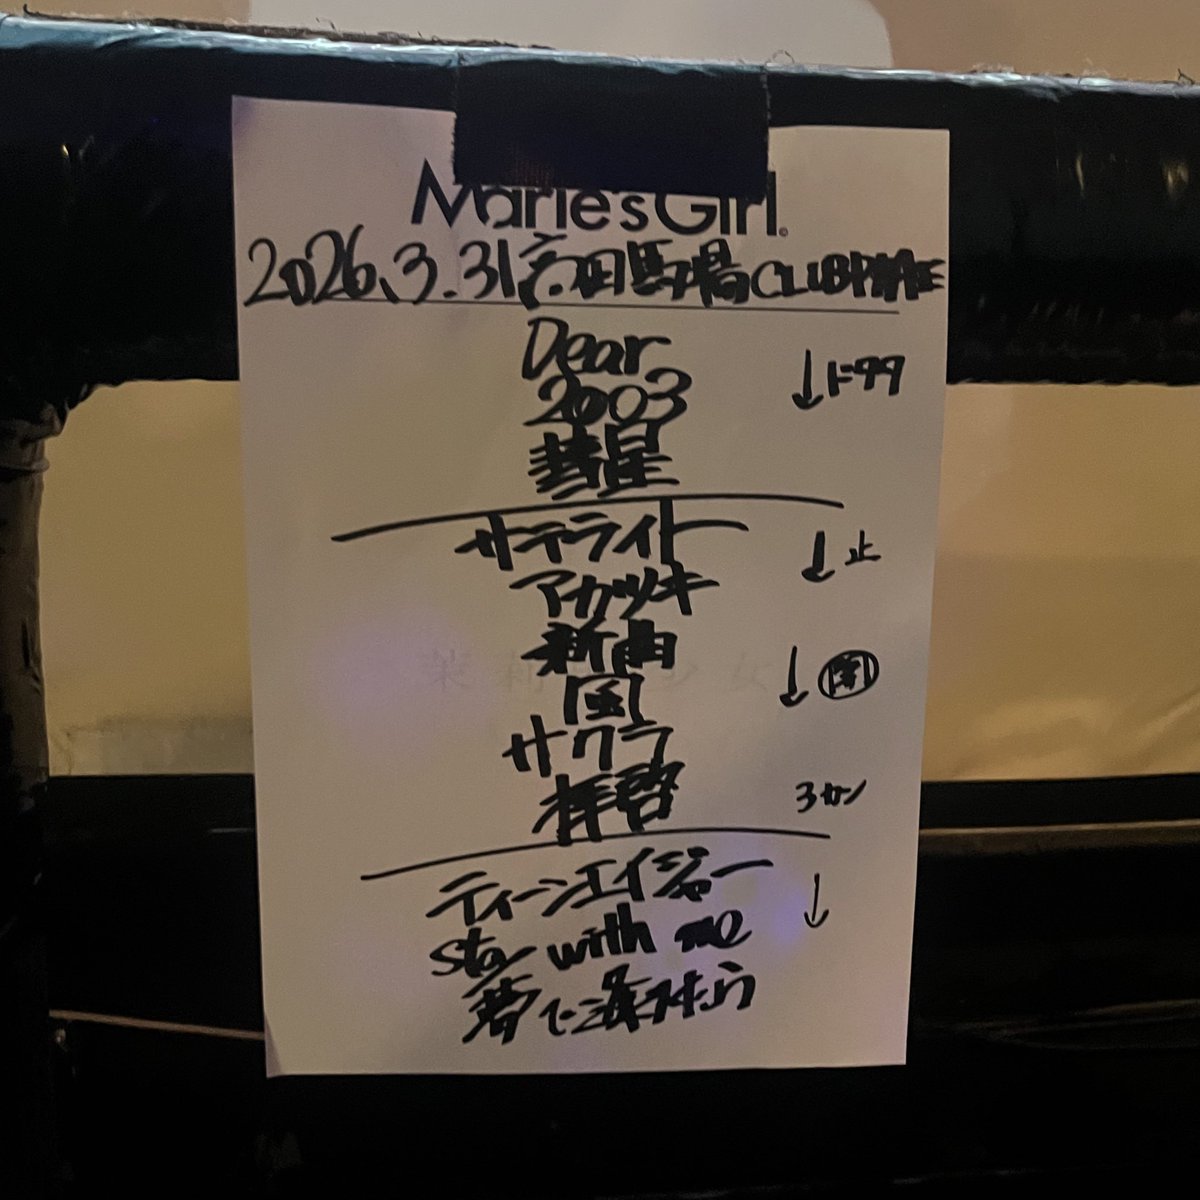 Marie's Girl
2026.3.31 高田馬場 CLUB PHASE
Dear
2003 ↓ドララ
彗星
サテライト ↓止
アカツキ
新曲 ↓
国
サクラ
拝啓 3カン
ティーンエイジャー
stay with me ↓
夢で逢えたら